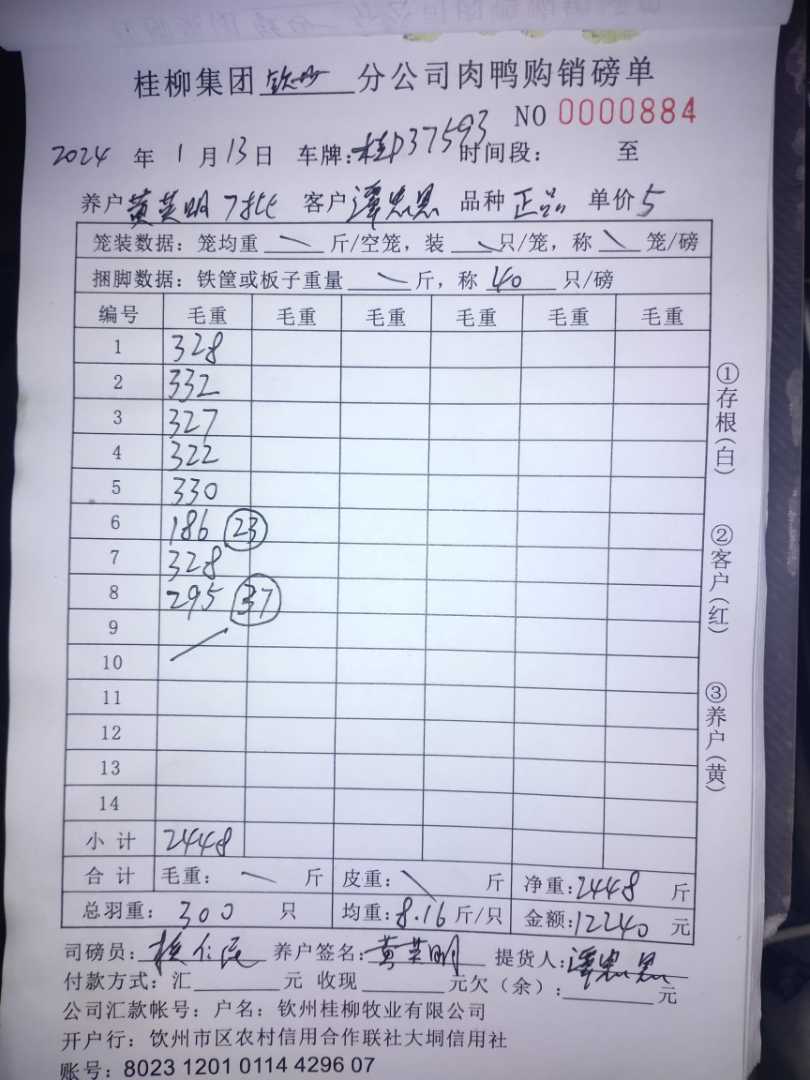 桂柳集团钦州分公司肉鸭购销磅单
NO 0000884
2024 年 1 月 13 日 车牌:桂D37593 时间段: 至
养户 黄英明 7批 客户 谭忠恩 品种 正品 单价 5
笼装数据: 笼均重 斤/空笼, 装 只/笼, 称 笼/磅
捆脚数据: 铁筐或板子重量 斤, 称 40 只/磅
编号 毛重 毛重 毛重 毛重 毛重 毛重
1 328
2 332
3 327
4 322
5 330
6 186 23
7 328
8 295 37
9
10
11
12
13
14
小计 2448
合计 毛重: 斤 皮重: 斤 净重:2448 斤
总羽重: 300 只 均重:8.16 斤/只 金额:12240 元
司磅员: 养户签名:黄英明 提货人:谭忠恩
付款方式: 汇 元 收现 元欠(余): 元
公司汇款帐号: 户名: 钦州桂柳牧业有限公司
开户行: 钦州市区农村信用合作联社大垌信用社
账号: 8023 1201 0114 4296 07
①存根(白)
②客户(红)
③养户(黄)